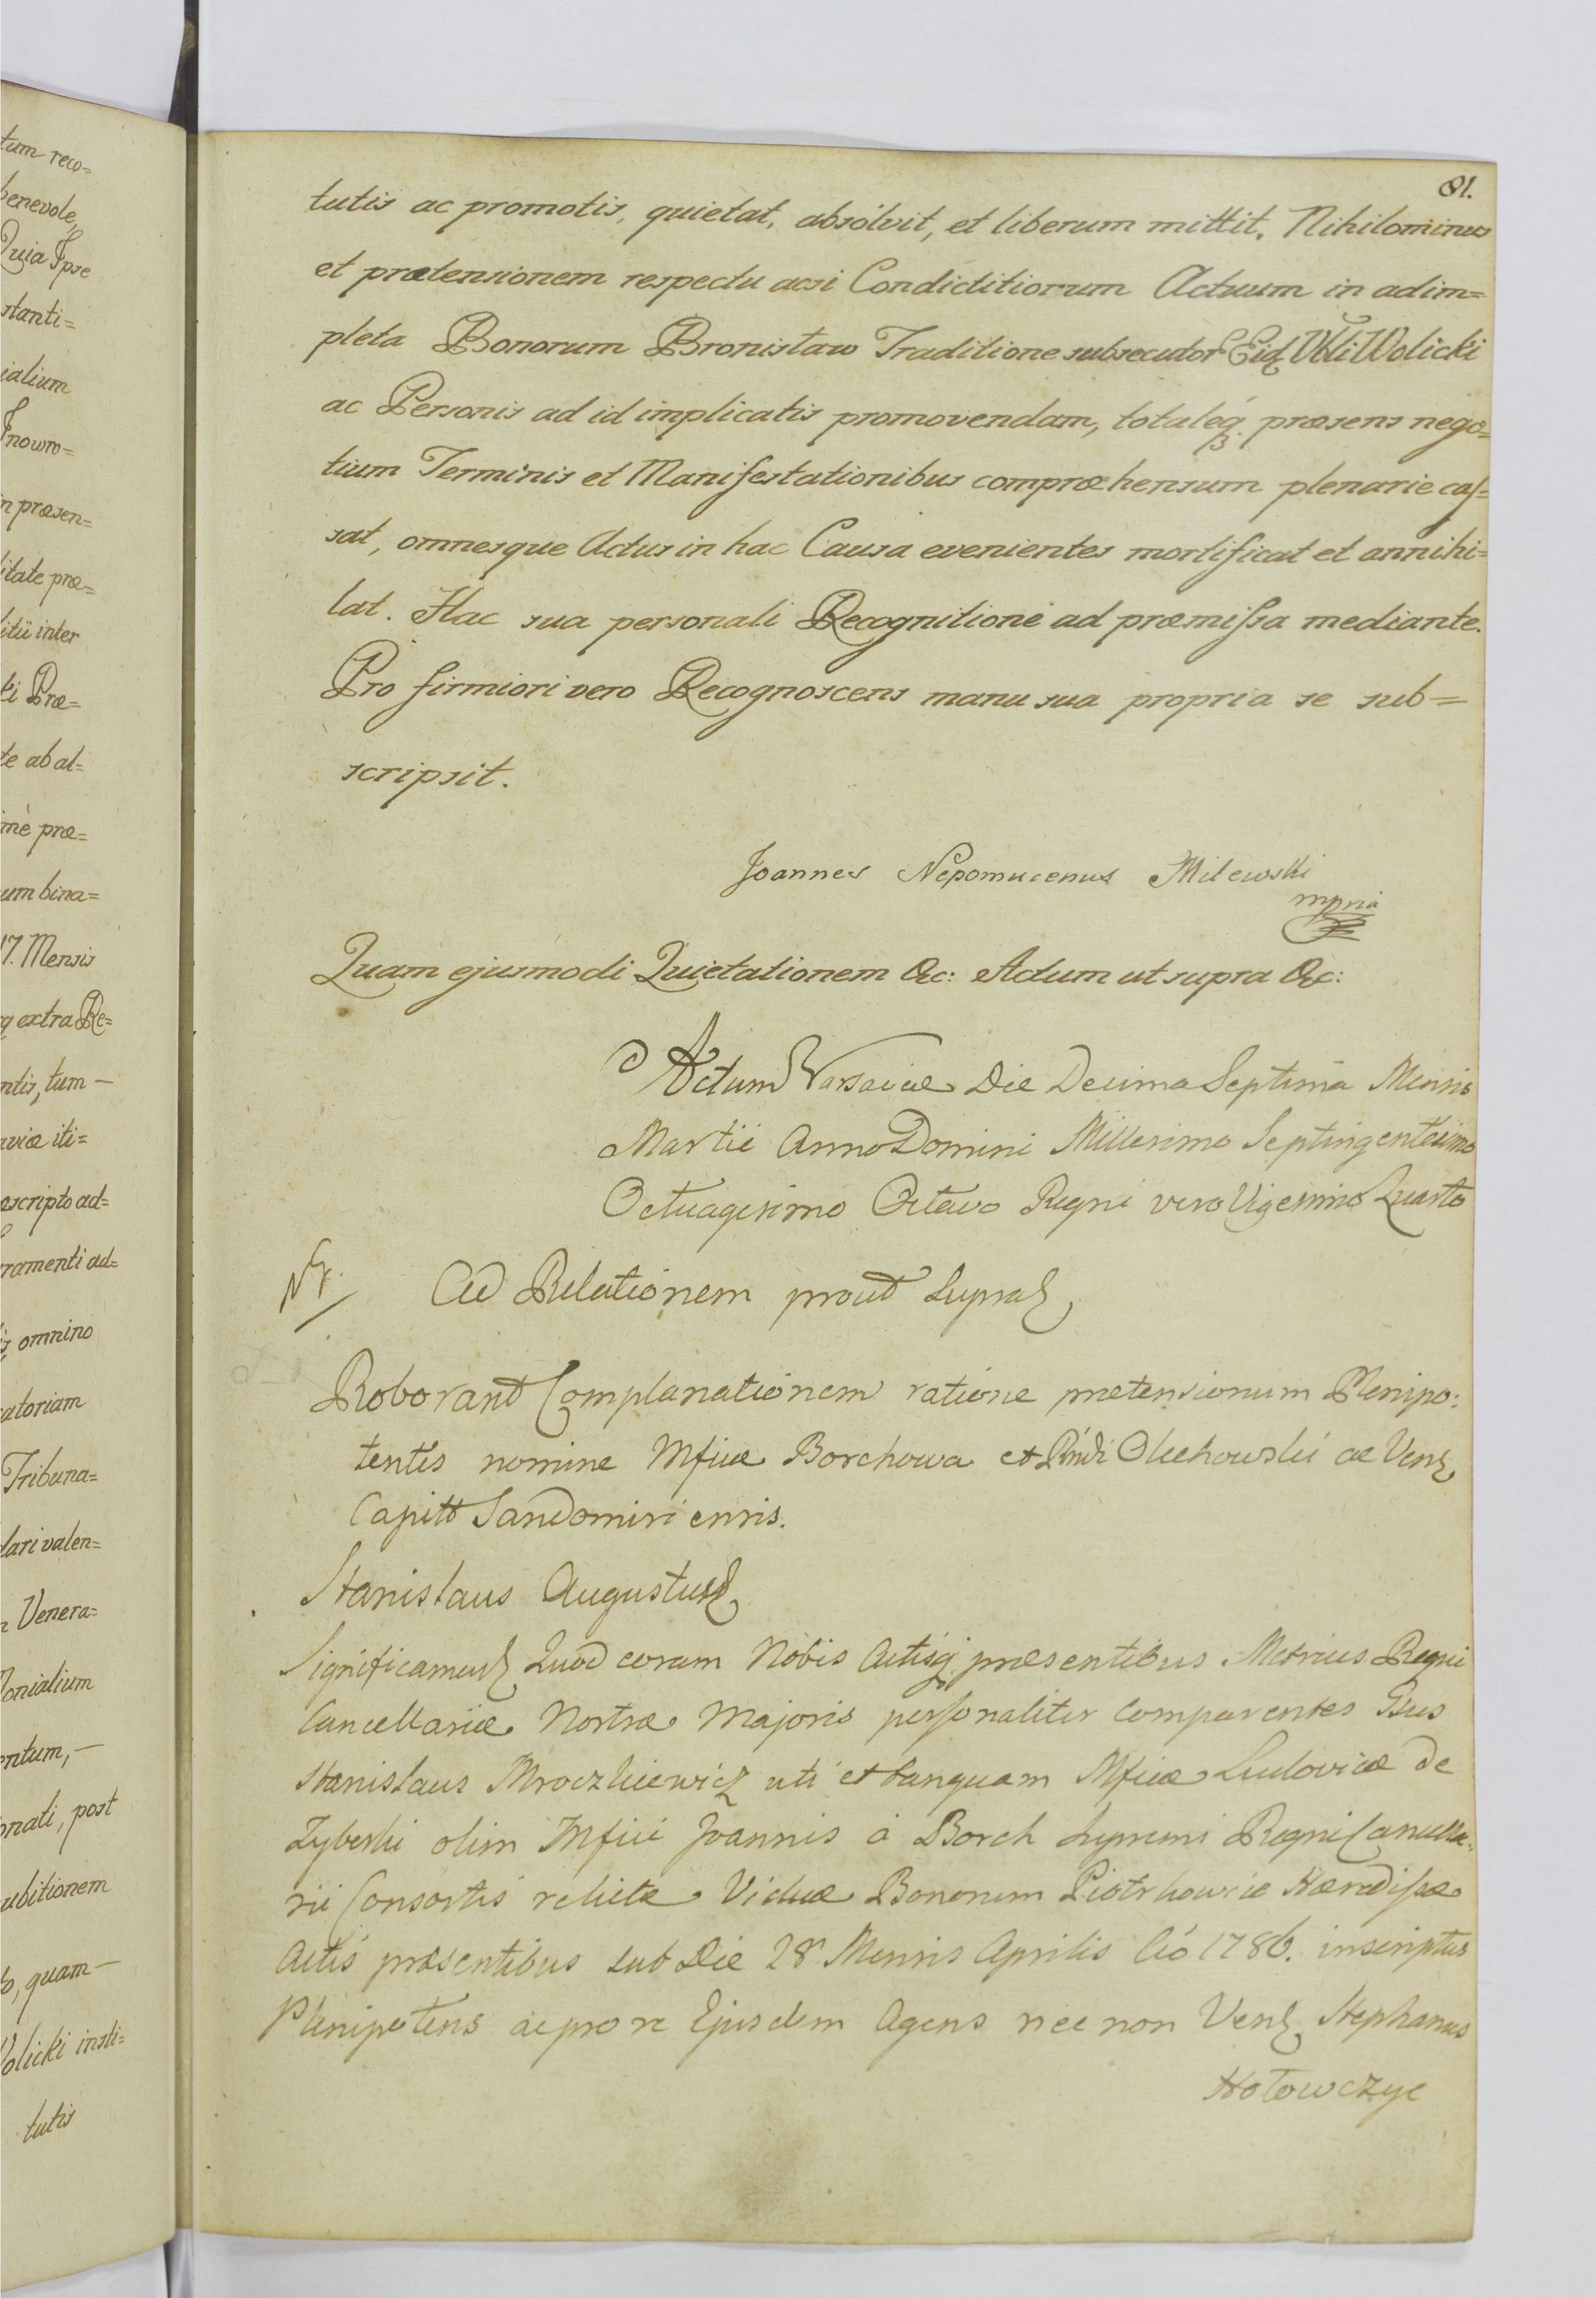 tum reco=
benevole,
Quia Ipse
stanti=
ialium
Inowro=
n præsen=
litate præ=
litii inter
ki Præ=
te ab al=
imè præ=
um bina=
17. Mensis
extra Re=
ntis, tum —
aviæ iti=
ascripto ad=
ramenti ad=
omnino
atoriam
Tribuna=
lari valen=
n Venera=
Monialium
entum, —
onali, post
ubitionem
to, quam —
Wolicki insti=
tutis
81.
tutis ac promotis, quietat, absólvit, et liberum mittit. Nihilominus
et prætensionem respectu acsi Condictitiorum Actuum in adim=
pleta Bonorum Bronisław Traditione subsecutor Eid Wli Wolicki
ac Personis ad id implicatis promovendam, totaleq præsens nego=
tium Terminis et Manifestationibus compræhensum plenarie cas=
sat, omnesque Actus in hac Causa evenientes mortificat et annihi=
lat. Hac sua personali Recognitione ad præmissa mediante.
Pro firmiori vero Recognoscens manu sua propria se sub=
scripsit.
Joannes Nepomucenus Milewski
mpria
Quam ejusmodi Quietationem &c: Actum ut supra &c:
Actum Varsaviæ Die Decima Septima Mensis
Martii Anno Domini Millesimo Septingentesimo
Octuagesimo Octavo Regni vero Vigesimo Quarto
Ad Relationem prout Supra
Roborand Complanationem ratione prætensionum Plenipo:
tentis nomine Mficæ Borchowa et Rndi Olechowski ac Ven
Capitt Sandomiriensis.
Stanislaus Augustus
Significamus Quod coram Nobis Actisq præsentibus Metrices Regni
Cancellariæ Nostræ Majoris personaliter Comparentes Gsus
Stanislaus Mroczkiewicz uti et tanquam Mficæ Ludovicæ de
Zyberki olim Mfici Joannis à Borch Supremi Regni Cancella:
rii Consortis relictæ Viduæ Bonorum Piotrkowice Hæredissæ
Actis præsentibus sub Die 28 Mensis Aprilis Aõ 1786. inscriptus
Plenipotens ac pro re Ejusdem Agens nec non Ven Stephanus
Hołowczyc